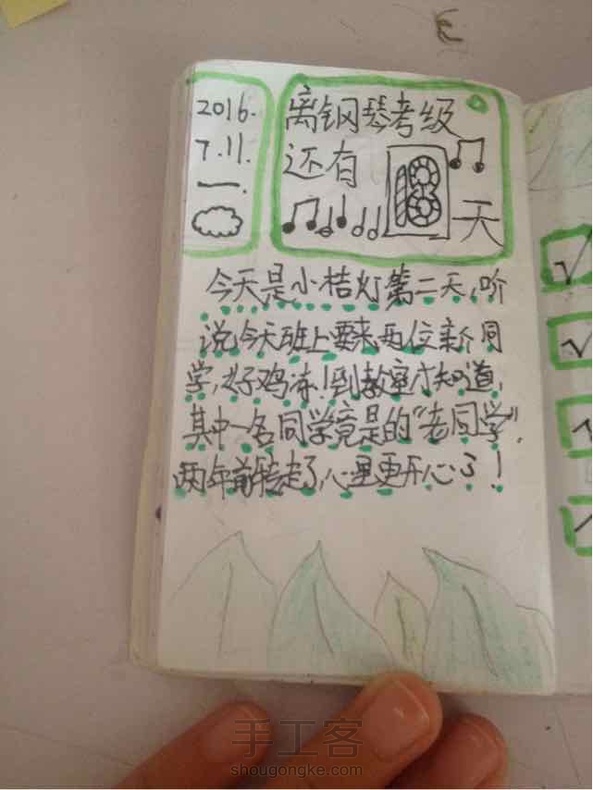 2016.
7.11.
一.
离钢琴考级
还有
18
天
今天是小桔灯第二天,听
说今天班上要来两位新同
学,好鸡冻!到教室才知道,
其中一名同学竟是的“老同学”,
两年前转走了,心里更开心了!
手工客
shougongke.com